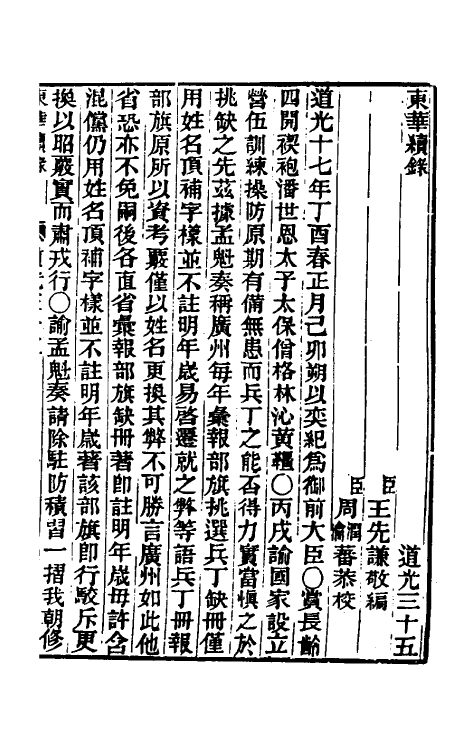 東華續錄
道光三十五
臣王先謙敬編
臣周潤蕃恭校
道光十七年丁酉春正月己卯朔以奕紀為御前大臣〇賞長齡
四開禊袍潘世恩太子太保僧格林沁黃韁〇丙戌諭國家設立
營伍訓練操防原期有備無患而兵丁之能否得力實當慎之於
挑缺之先茲據孟魁奏稱廣州每年彙報部旗挑選兵丁缺冊僅
用姓名頂補字樣並不註明年歲易啓遷就之弊等語兵丁冊報
部旗原所以資考覈僅以姓名更換其弊不可勝言廣州如此他
省恐亦不免嗣後各直省彙報部旗缺冊著卽註明年歲毋許含
混儻仍用姓名頂補字樣並不註明年歲著該部旗卽行駮斥更
換以昭嚴實而肅戎行〇諭孟魁奏請除駐防積習一摺我朝修